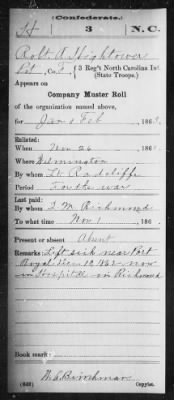 (Confederate.)
H 3 N.C.
Robt. A. Hightower
Pvt, Co. F, 3 Reg't North Carolina Inf.
(State Troops.)
Appears on
Company Muster Roll
of the organization named above,
for Jan & Feb, 186
Enlisted:
When Nov 26, 186
Where Wilmington
By whom Lt. Radcliffe
Period For the war
Last paid:
By whom T. M. Richmond
To what time Nov 1, 186
Present or absent Absent
Remarks: Left sick near Port
Royal Dec 12 1862 now
in Hospital in Richmond
Book mark:
(642) Copyist.